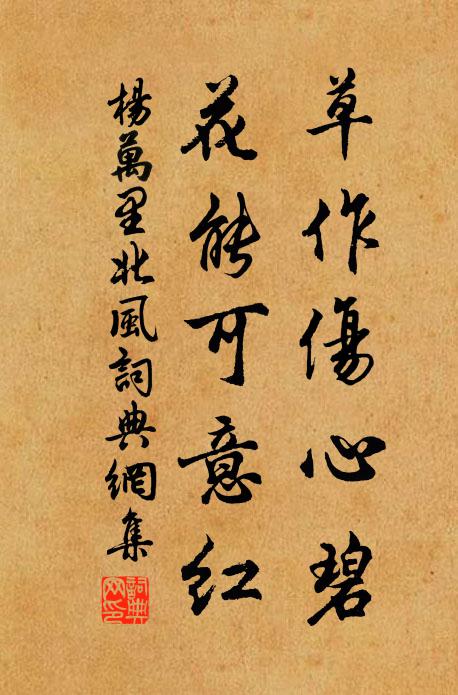 草作傷心碧
花能可意紅
楊萬里北風詞典網集
詞典网印